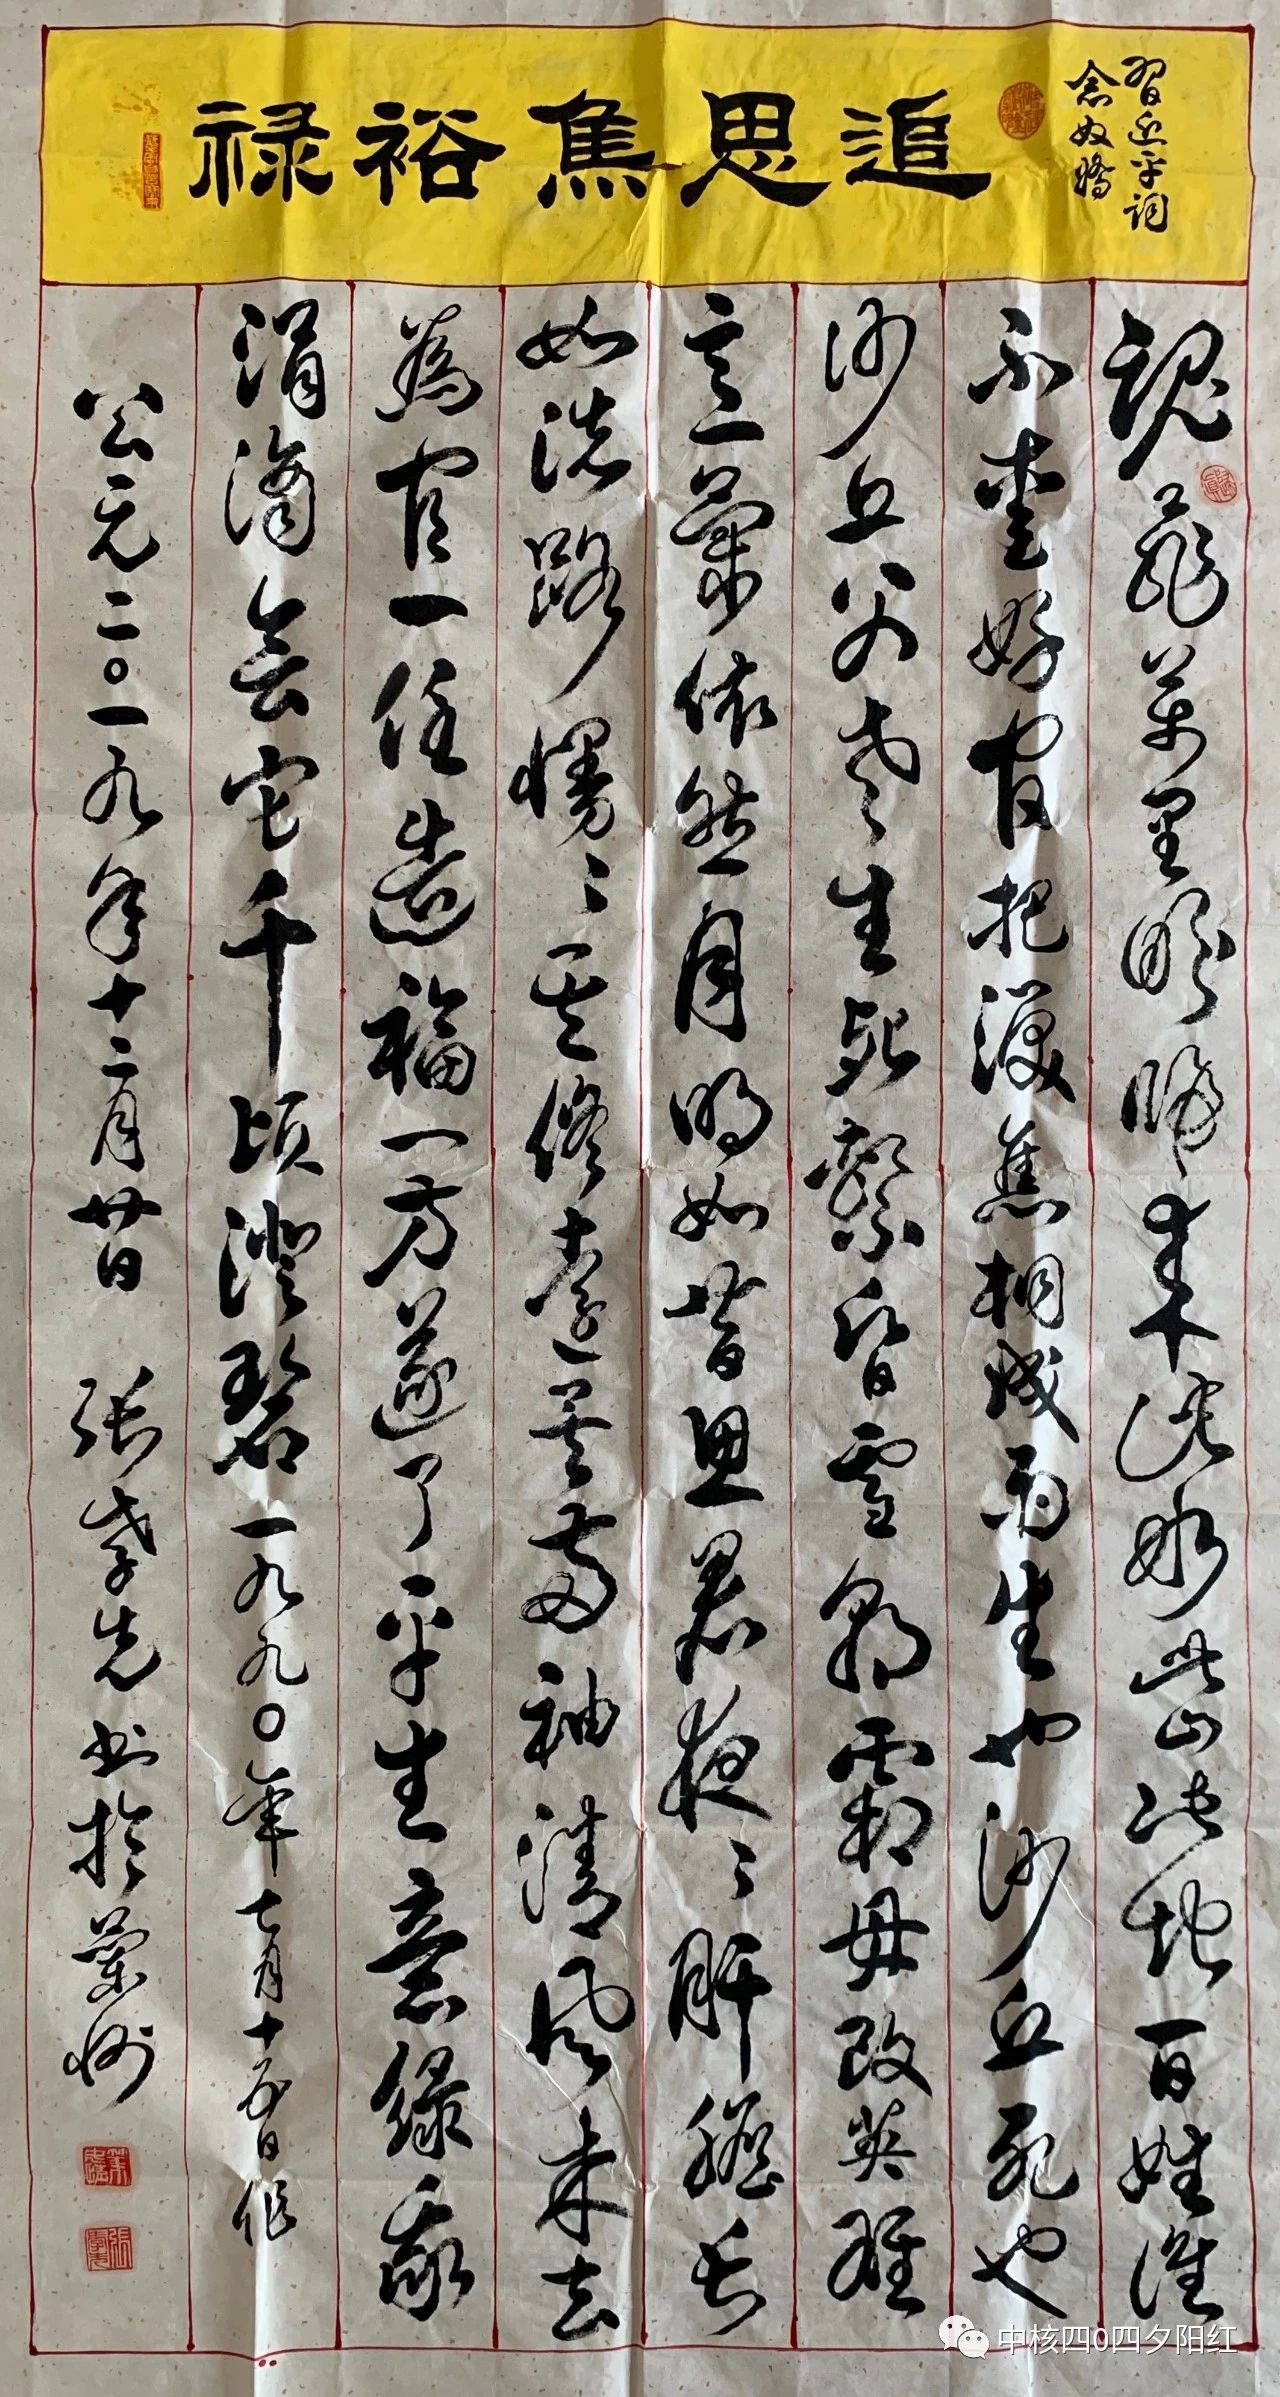 習近平詞
念奴嬌
追思焦裕禄
魂飛萬里盼歸來此水此山此地百姓誰
不愛好官把淚焦桐成雨生也沙丘死也
沙丘父老生死繫暮雪朝霜毋改英雄
意氣依然月明如昔思君夜〻肝膽長
如洗路漫〻其修遠矣兩袖清風来去
為官一任造福一方遂了平生意绿我
涓滴會它千頃澄碧一九九〇年七月十五日作
公元二〇一九年十二月廿日 張學先书於蘭州
中核四0四夕阳红